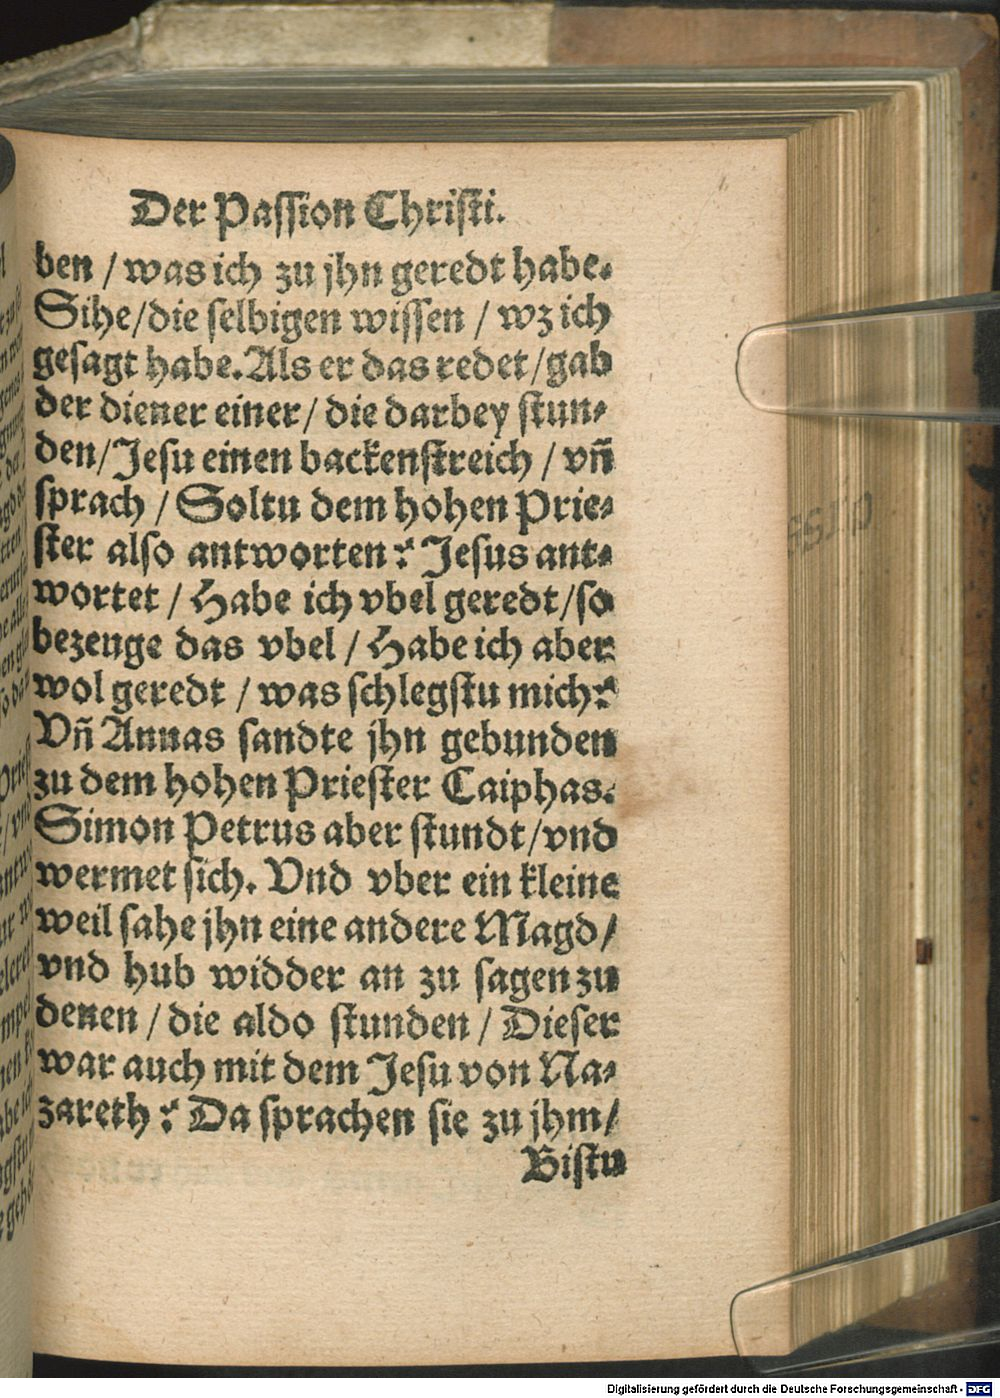 Der Paſſion Chriſti.
ben / was ich zu jhn geredt habe.
Sihe/die ſelbigen wiſſen / wz ich
geſagt habe. Als er das redet/gab
der diener einer/ die darbey ſtun⸗
den/Jeſu einen backenſtreich / vñ
ſprach / Soltu dem hohen Prie⸗
ſter alſo antworten? Jeſus ant⸗
wortet / Habe ich vbel geredt/ſo
bezeuge das vbel / Habe ich aber
wol geredt / was ſchlegſtu mich?
Vñ Annas ſandte jhn gebunden
zu dem hohen Prieſter Caiphas.
Simon Petrus aber ſtundt/vnd
wermet ſich. Vnd vber ein kleine
weil ſahe jhn eine andere Magd/
vnd hub widder an zu ſagen zu
denen / die aldo ſtunden / Dieſer
war auch mit dem Jeſu von Na⸗
zareth? Da ſprachen ſie zu jhm/
Biſtu
Digitalisierung gefördert durch die Deutsche Forschungsgemeinschaft - DFG